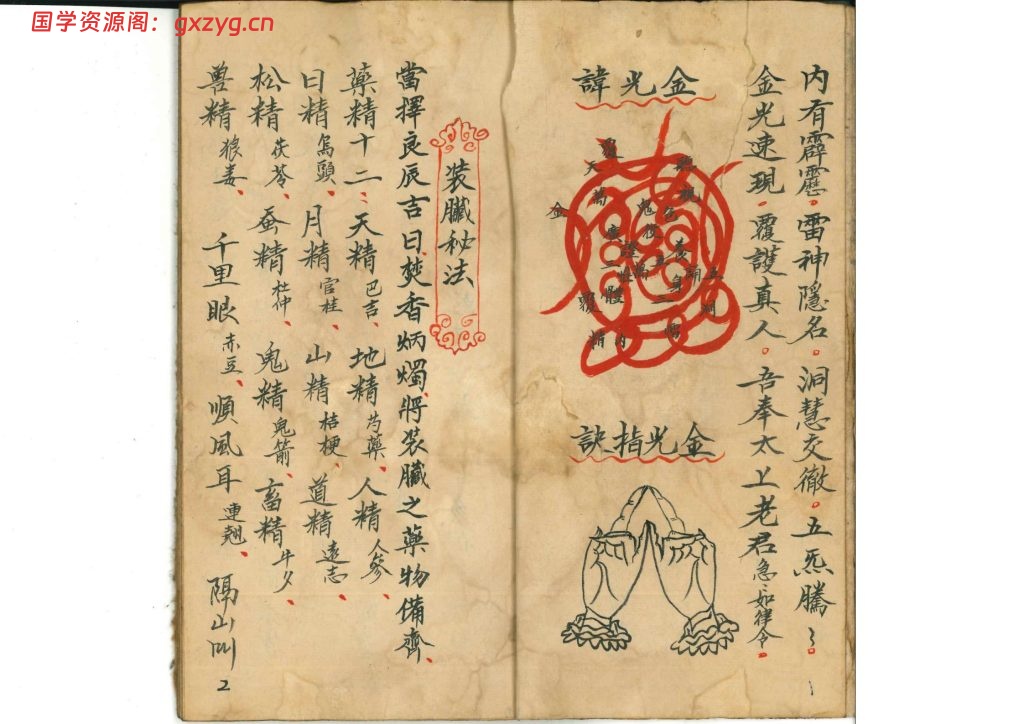 国学资源阁：gxzyg.cn
内有霹靂。雷神隱名。洞慧交徹。五炁騰〻。
金光速現。覆護真人。吾奉太上老君急〻如律令。
金光諱
金光指訣
1
裝臟秘法
當擇良辰吉日、焚香炳燭、將裝臟之藥物備齊、
藥精十二、天精巴吉、地精芍藥、人精人參、
日精烏頭、月精官桂、山精桔梗、道精遠志、
松精茯苓、蚕精杜仲、鬼精鬼箭、畜精牛夕、
兽精狼毒、千里眼赤豆、順風耳連翹、隔山叫
2